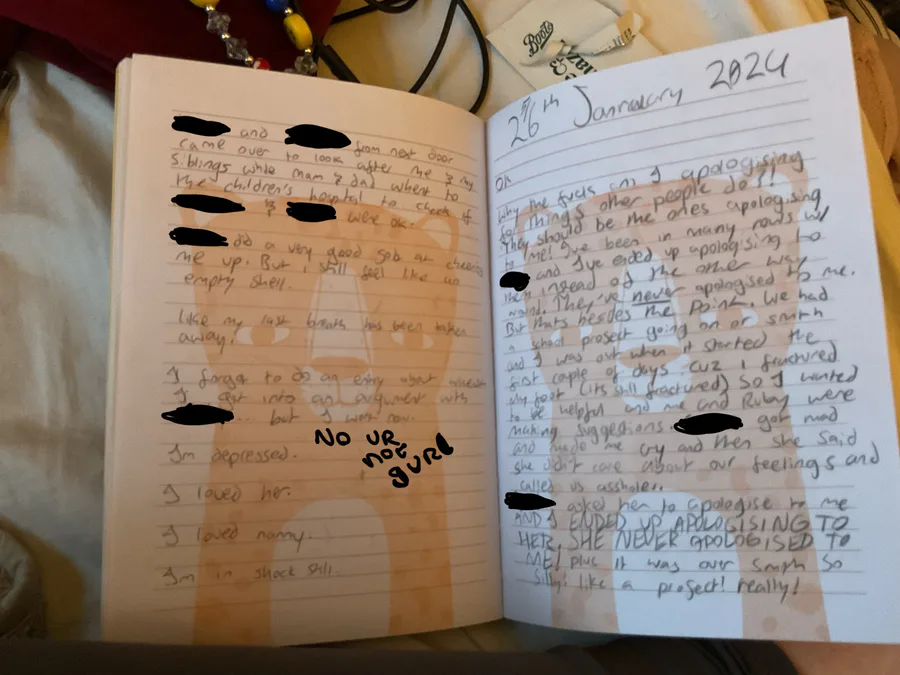 and
from next door
came over to look after me & my
siblings while mam & dad whent to
the children's hospital to check if
& were ok.
did a very good job at cheering
me up. But I still feel like an
empty shell.
Like my last breath has been taken
away.
I forgot to do an entry about
I got into an argument with
... but I wont now.
I'm depressed.
NO UR
not
gurl
I loved her.
I loved nanny.
I'm in shock still.
Boots
26th January 2024
OK
Why the fuck am I apologising
for things other people do?!
They should be the ones apologising
to me! I've been in many rows w/
and I've ended up apologising to
them instead of the other way
around. They've never apologised to me.
But thats besides the point. We had
a school project going on or smth
and I was out when it started the
first couple of days cuz I fractured
my foot (its still fractured) So I wanted
to be helpful and me and Rubay were
making suggestions. got mad
and made me cry and then she said
she didn't care about our feelings and
called us assholes.
asked her to apologise to me
AND I ENDED UP APOLOGISING TO
HER, SHE NEVER APOLOGISED TO
ME! plus it was over smth so
silly! like a project! really!